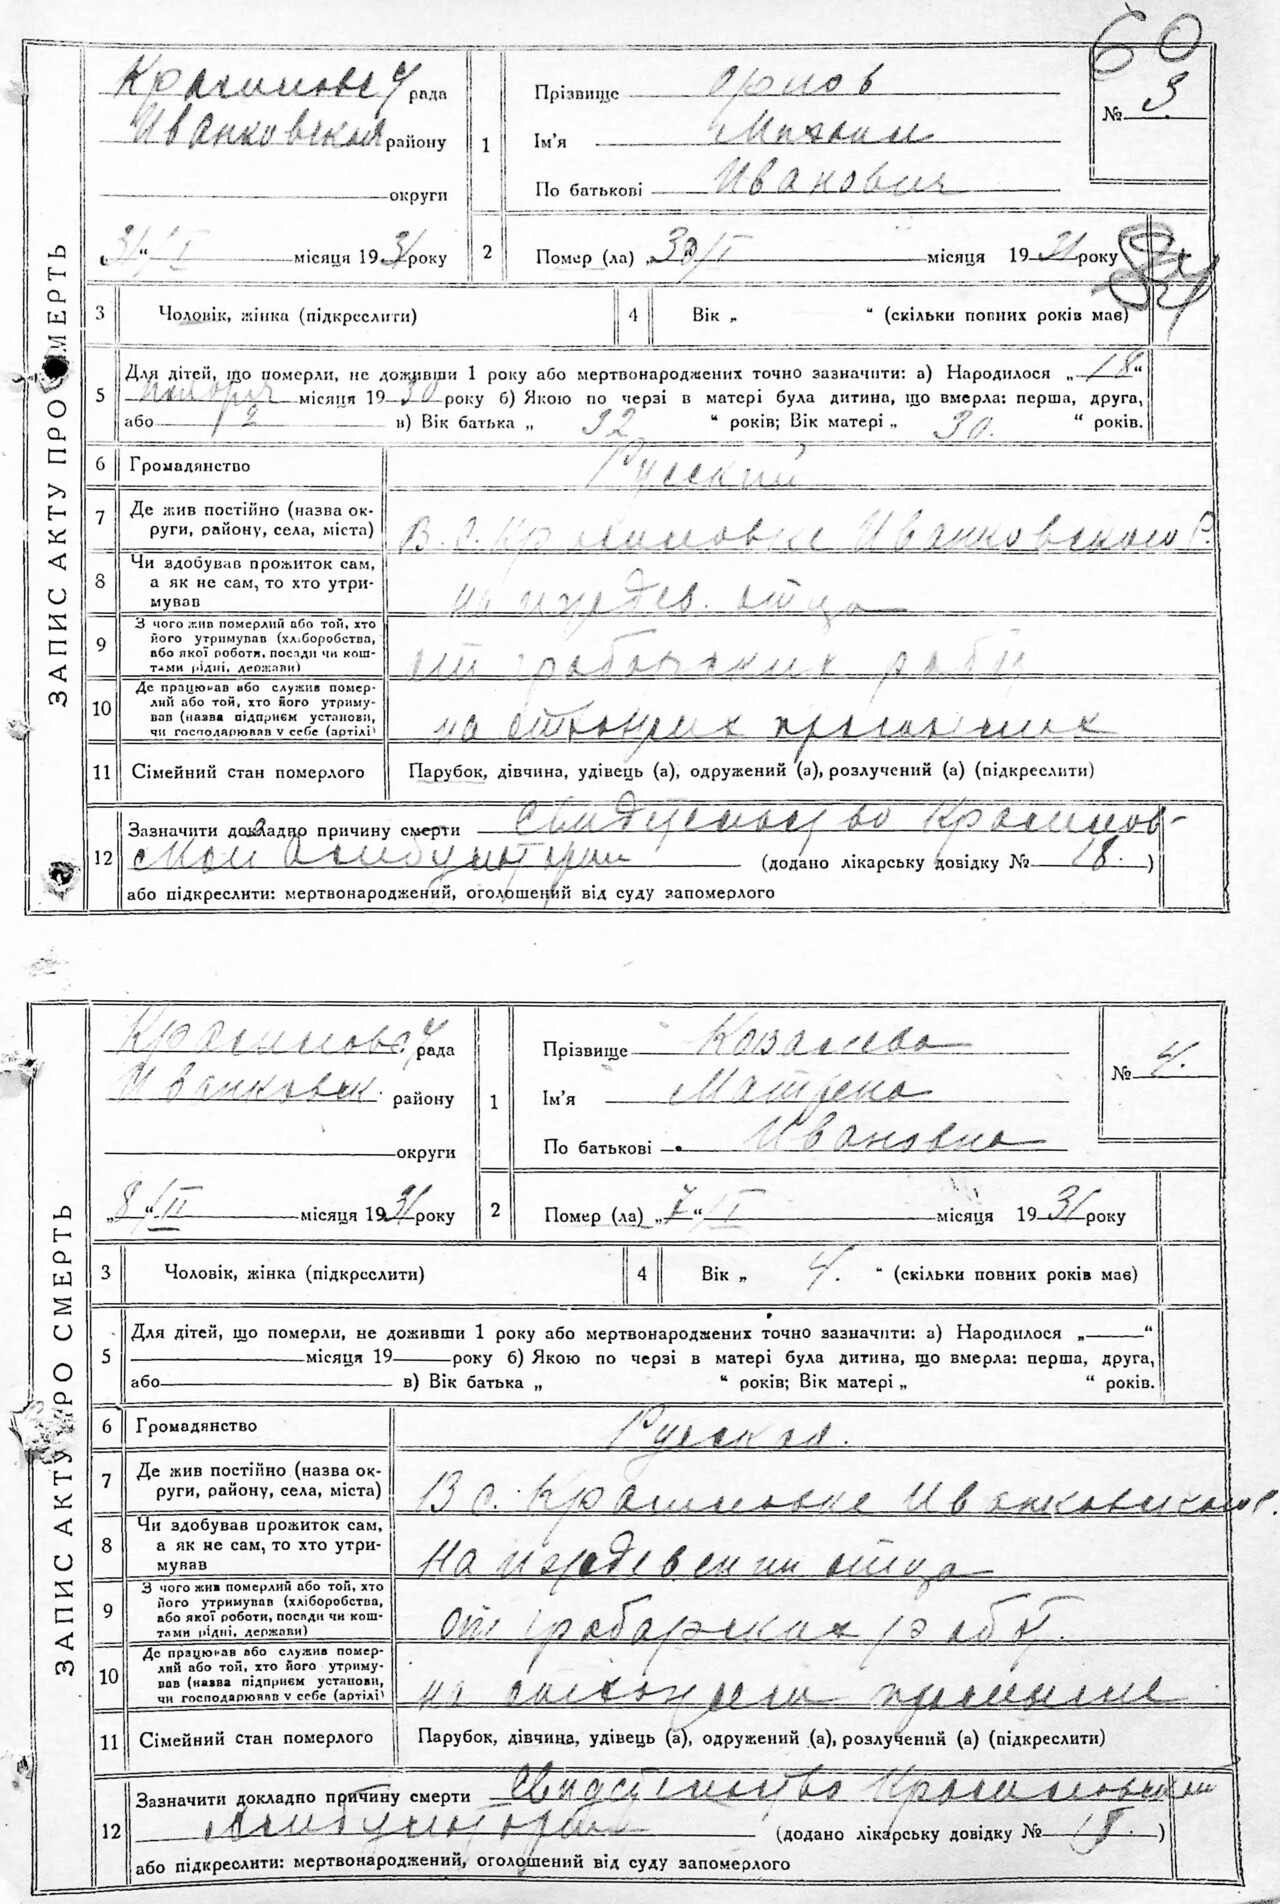 60
ЗАПИС АКТУ ПРО СМЕРТЬ
Красиловс рада
Иванковская району
округи
„31“/I місяця 1931 року
1
Прізвище Орлов
Ім'я Михаил
По батькові Иванович
№ 3
2
Помер (ла) „30“/I місяця 1931 року
3 Чоловік, жінка (підкреслити)
4 Вік „ “ (скільки повних років мав)
5 Для дітей, що померли, не доживши 1 року або мертвонароджених точно зазначити: а) Народилося „18“
Ноября місяця 1930 року б) Якою по черзі в матері була дитина, що вмерла: перша, друга,
або 2 в) Вік батька „ 32 “ років; Вік матері „ 30. “ років.
6 Громадянство Русский
7 Де жив постійно (назва округи, району, села, міста)
В. С. Красиловке Иванковского Р.
8 Чи здобував прожиток сам, а як не сам, то хто утримував
на иждев. отца
9 З чого жив померлий або той, хто його утримував (хліборобства, або якої роботи, посади чи коштами рідні, держави)
от грабарских работ
10 Де працював або служив померлий або той, хто його утримував (назва підприєм установи, чи господарював у себе (артілі)
на
11 Сімейний стан померлого Парубок, дівчина, удівець (а), одружений (а), розлучений (а) (підкреслити)
12 Зазначити докладно причину смерти Свидетельство Красилов-
ской Амбулатории (додано лікарську довідку № 18. )
або підкреслити: мертвонароджений, оголошений від суду запомерлого
ЗАПИС АКТУ ПРО СМЕРТЬ
Красиловс. рада
Иванковск. району
округи
„8“/II місяця 1931 року
1
Прізвище Козалева
Ім'я Матрена
По батькові Ивановна
№ 4.
2
Помер (ла) „7“/I місяця 1931 року
3 Чоловік, жінка (підкреслити)
4 Вік „ 4. “ (скільки повних років мав)
5 Для дітей, що померли, не доживши 1 року або мертвонароджених точно зазначити: а) Народилося „ “
місяця 19 року б) Якою по черзі в матері була дитина, що вмерла: перша, друга,
або в) Вік батька „ “ років; Вік матері „ “ років.
6 Громадянство Русская.
7 Де жив постійно (назва округи, району, села, міста)
В с. Красиловке Иванковского Р.
8 Чи здобував прожиток сам, а як не сам, то хто утримував
На иждевении отца
9 З чого жив померлий або той, хто його утримував (хліборобства, або якої роботи, посади чи коштами рідні, держави)
от грабарских работ.
10 Де працював або служив померлий або той, хто його утримував (назва підприєм установи, чи господарював у себе (артілі)
на
11 Сімейний стан померлого Парубок, дівчина, удівець (а), одружений (а), розлучений (а) (підкреслити)
12 Зазначити докладно причину смерти Свидетельство Красиловской
Амбулатории (додано лікарську довідку № 18. )
або підкреслити: мертвонароджений, оголошений від суду запомерлого